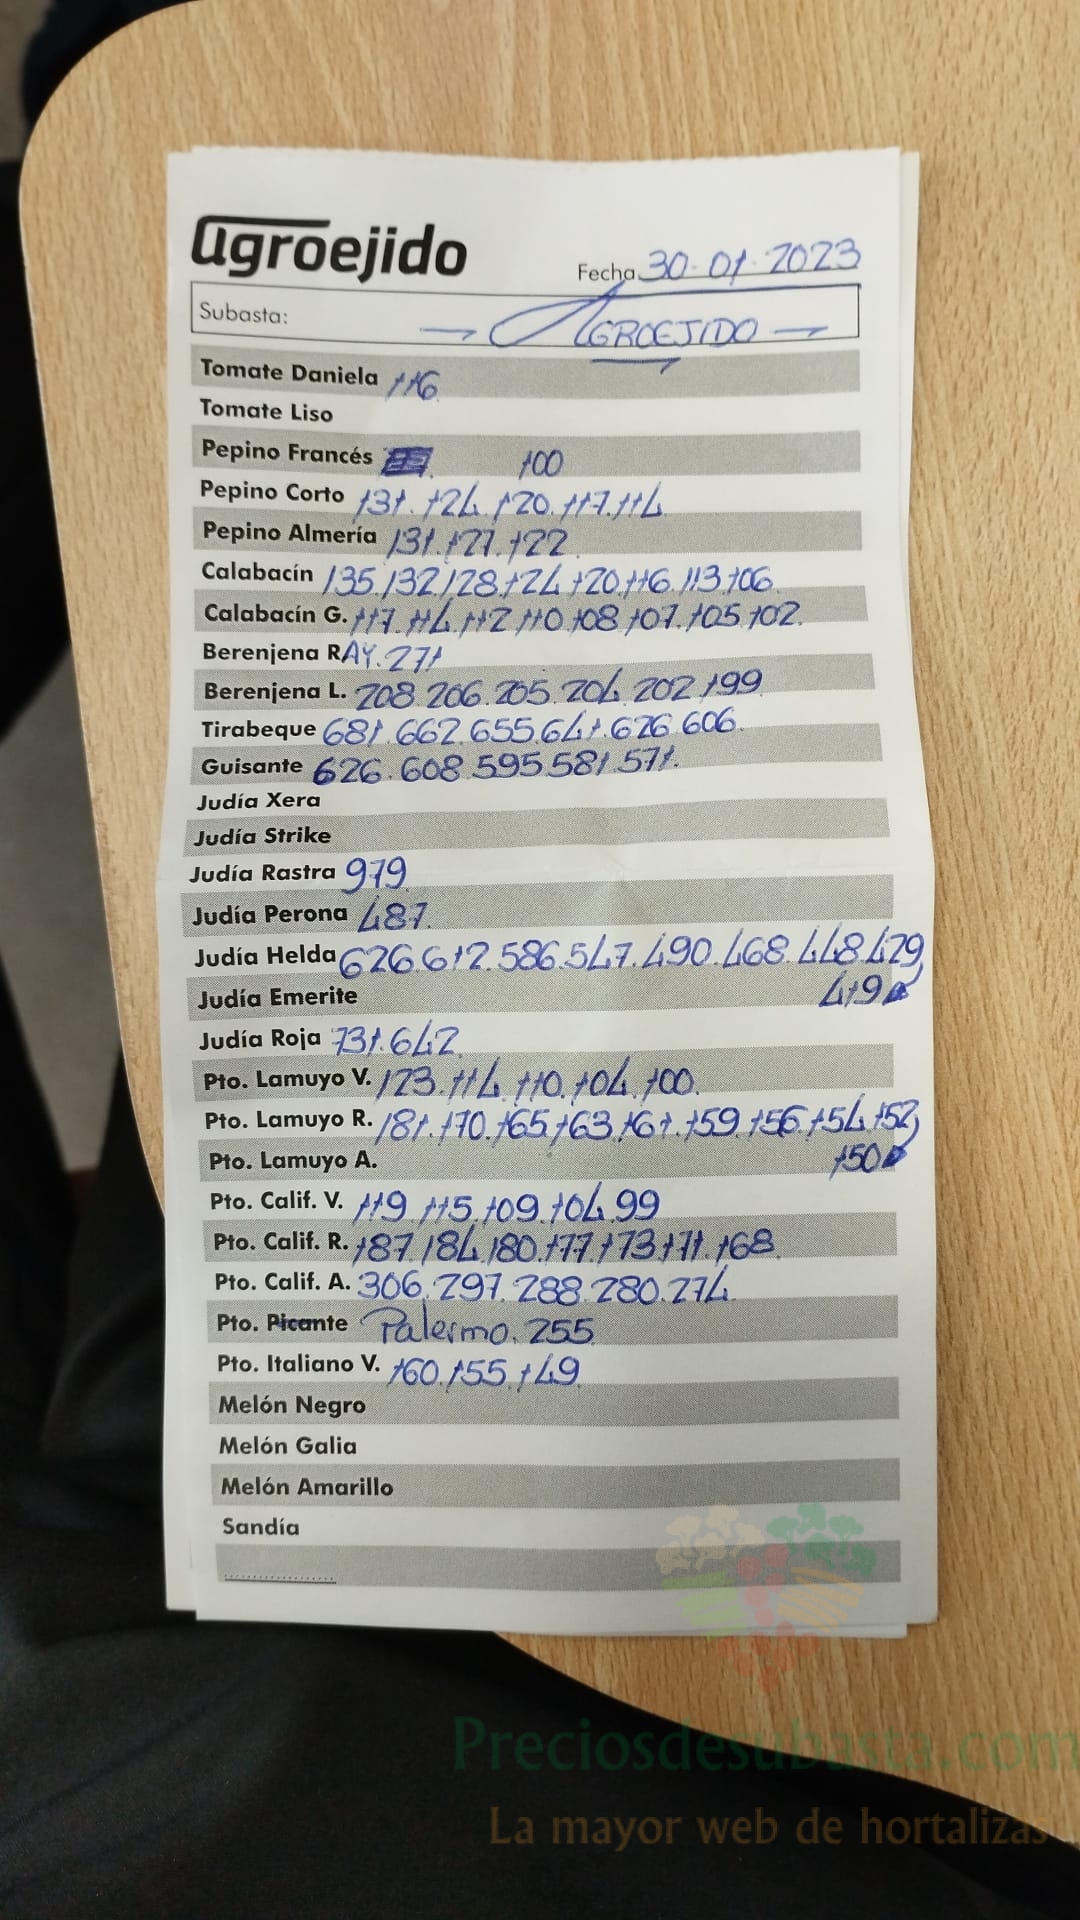 agroejido
Fecha 30-01-2023
Subasta: → AGROEJIDO →
Tomate Daniela 116
Tomate Liso
Pepino Francés 100
Pepino Corto 131. 124. 120. 117. 114
Pepino Almería 131. 127. 122.
Calabacín 135. 132. 128. 124. 120. 116. 113. 106
Calabacín G. 117. 114. 112. 110. 108. 107. 105. 102.
Berenjena RAY. 271
Berenjena L. 208. 206. 205. 204. 202. 199
Tirabeque 681. 662. 655. 641. 626. 606.
Guisante 626. 608. 595. 581. 571.
Judía Xera
Judía Strike
Judía Rastra 979
Judía Perona 487.
Judía Helda 626. 612. 586. 547. 490. 468. 448. 429
Judía Emerite 419
Judía Roja 731. 642
Pto. Lamuyo V. 123. 114. 110. 104. 100.
Pto. Lamuyo R. 181. 170. 165. 163. 161. 159. 156. 154. 152
Pto. Lamuyo A. 150
Pto. Calif. V. 119. 115. 109. 104. 99
Pto. Calif. R. 187. 184. 180. 177. 173. 171. 168
Pto. Calif. A. 306. 297. 288. 280. 274.
Pto. Picante Palermo. 255
Pto. Italiano V. 160. 155. 149
Melón Negro
Melón Galia
Melón Amarillo
Sandía
Preciosdesubasta.com
La mayor web de hortalizas